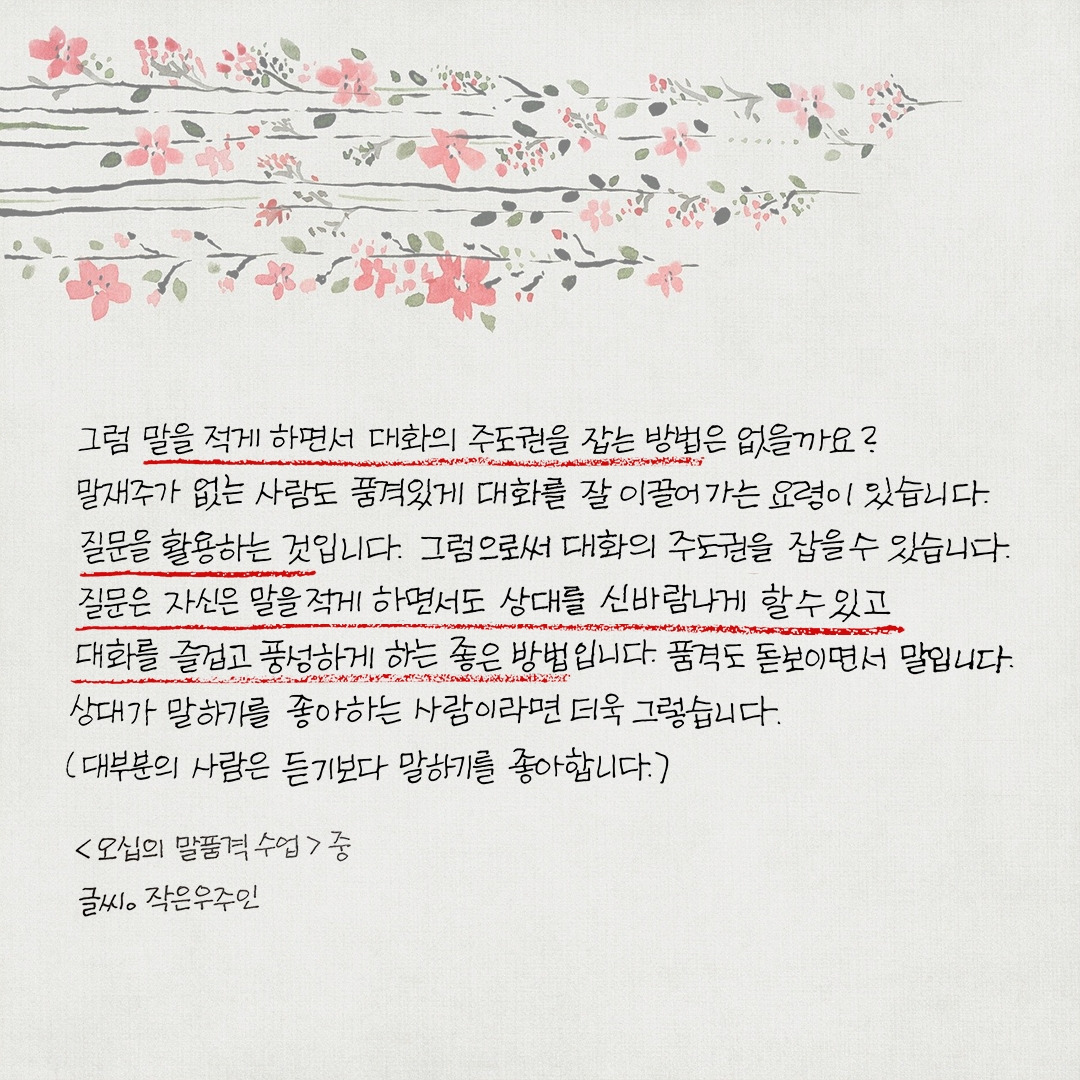 그럼 말을 적게 하면서 대화의 주도권을 잡는 방법은 없을까요?
말재주가 없는 사람도 품격있게 대화를 잘 이끌어가는 요령이 있습니다.
질문을 활용하는 것입니다. 그럼으로써 대화의 주도권을 잡을 수 있습니다.
질문은 자신은 말을 적게 하면서도 상대를 신바람나게 할 수 있고
대화를 즐겁고 풍성하게 하는 좋은 방법입니다. 품격도 돋보이면서 말입니다.
상대가 말하기를 좋아하는 사람이라면 더욱 그렇습니다.
(대부분의 사람은 듣기보다 말하기를 좋아합니다.)
<오십의 말품격 수업> 중
글씨。작은우주인